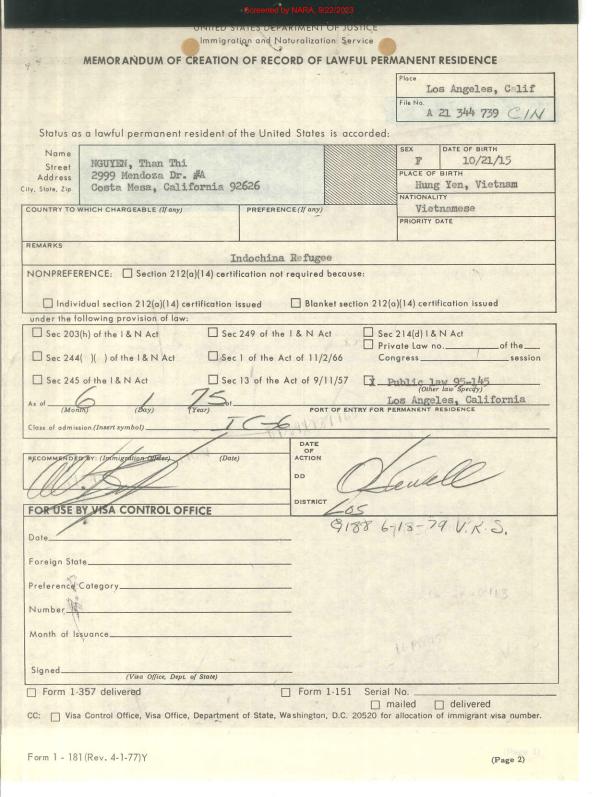 Screened by NARA, 9/22/2023
UNITED STATES DEPARTMENT OF JUSTICE
Immigration and Naturalization Service
MEMORANDUM OF CREATION OF RECORD OF LAWFUL PERMANENT RESIDENCE
Place
Los Angeles, Calif
File No.
A 21 344 739 CIN
Status as a lawful permanent resident of the United States is accorded:
Name NGUYEN, Than Thi
Street Address 2999 Mendoza Dr. #A
City, State, Zip Costa Mesa, California 92626
SEX F
DATE OF BIRTH 10/21/15
PLACE OF BIRTH
Hung Yen, Vietnam
NATIONALITY
Vietnamese
PRIORITY DATE
COUNTRY TO WHICH CHARGEABLE (If any) PREFERENCE (If any)
REMARKS
Indochina Refugee
NONPREFERENCE: ☐ Section 212(a)(14) certification not required because:
☐ Individual section 212(a)(14) certification issued ☐ Blanket section 212(a)(14) certification issued
under the following provision of law:
☐ Sec 203(h) of the I & N Act ☐ Sec 249 of the I & N Act ☐ Sec 214(d) I & N Act
☐ Private Law no. of the
☐ Sec 244( )( ) of the I & N Act ☐ Sec 1 of the Act of 11/2/66 Congress session
☐ Sec 245 of the I & N Act ☐ Sec 13 of the Act of 9/11/57 X Public law 95-145
(Other law Specify)
As of 6 1 75 at Los Angeles, California
(Month) (Day) (Year) PORT OF ENTRY FOR PERMANENT RESIDENCE
Class of admission (Insert symbol) IC-6
RECOMMENDED BY: (Immigration Officer) (Date)
DATE OF ACTION
DD
DISTRICT LOS
9188 6-18-79 V.K.S.
FOR USE BY VISA CONTROL OFFICE
Date
Foreign State
Preference Category
Number
Month of Issuance
Signed
(Visa Office, Dept. of State)
☐ Form 1-357 delivered ☐ Form 1-151 Serial No.
☐ mailed ☐ delivered
CC: ☐ Visa Control Office, Visa Office, Department of State, Washington, D.C. 20520 for allocation of immigrant visa number.
Form 1 - 181 (Rev. 4-1-77)Y
(Page 2)